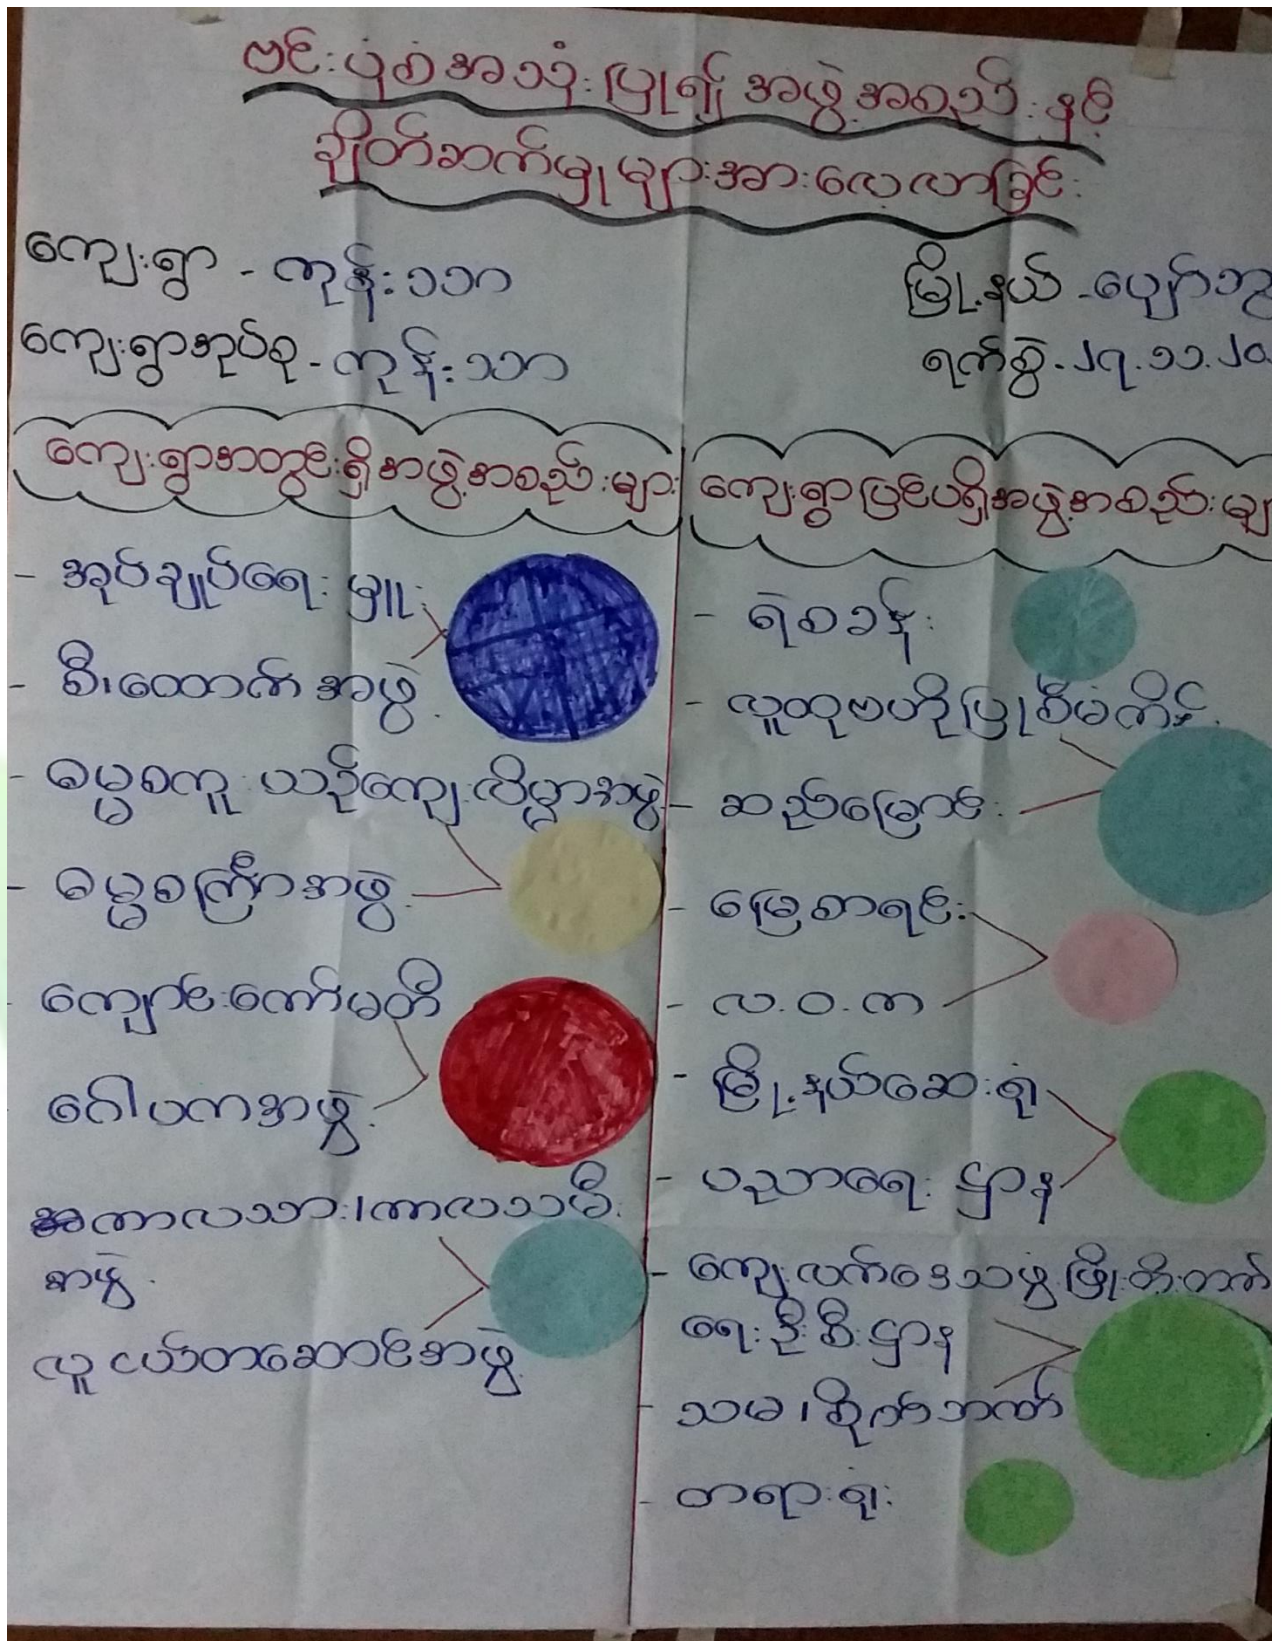 ဗင်းပုံစံအသုံးပြု၍ အဖွဲ့အစည်းနှင့်
ချိတ်ဆက်မှုများအားလေ့လာခြင်း
ကျေးရွာ - ကုန်းသာ
ကျေးရွာအုပ်စု - ကုန်းသာ
မြို့နယ် - ပျော်ဘွ
ရက်စွဲ - ၂၇.၁၁.၂၀
ကျေးရွာအတွင်းရှိအဖွဲ့အစည်းများ
- အုပ်ချုပ်ရေးမှူး
- စီ၊ထောက်အဖွဲ့
- ဓမ္မစကူ ယဉ်ကျေးလိမ္မာအဖွဲ့
- ဓမ္မစကြာအဖွဲ့
- ကျောင်းကော်မတီ
- ဂေါပကအဖွဲ့
ကာလသား၊ကာလသမီး
အဖွဲ့
လူငယ်တဆောင်အဖွဲ့
ကျေးရွာပြင်ပရှိအဖွဲ့အစည်းမျ
- ရဲစခန်း
- လူထုဗဟိုပြုစီမံကိန်း
- ဆည်မြောင်း
- မြေစာရင်း
- လ.ဝ.က
- မြို့နယ်ဆေးရုံ
- ပညာရေးဌာန
- ကျေးလက်ဒေသဖွံ့ဖြိုးတိုးတက်
ရေးဦးစီးဌာန
- သမ၊စိုက်ဘဏ်
- တရားရုံး